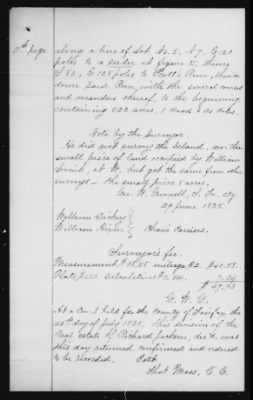 2nd page
along a line of Lot No. 5, N 7. E 120
poles to a cedar at figure 15, thence
S 82, E 128 poles to Pott's Run, thence
down said Run, with the several courses
and meanders thereof, to the beginning
containing 622 acres, 1 rood & 20 poles.
Note by the Surveyor.
He did not survey the Island, nor the
small piece of land occupied by William
at W. but got the same from other
surveys - The small piece 8 acres.
Geo. W. Gunnell, S. Fx. Cty
29 June 1835.
William
William
Chain Carriers.
Surveyor's fee.
Measurement $38.58 mileage $2. $40.58.
Plats calculation
G. W. G.
At a Court held for the county of Fairfax, the
20th day of July 1835. This division of the
Real Estate of Richard Jackson, dec'd. was
this day returned, confirmed and ordered
to be recorded. Teste
Thos. Moss. C. C.